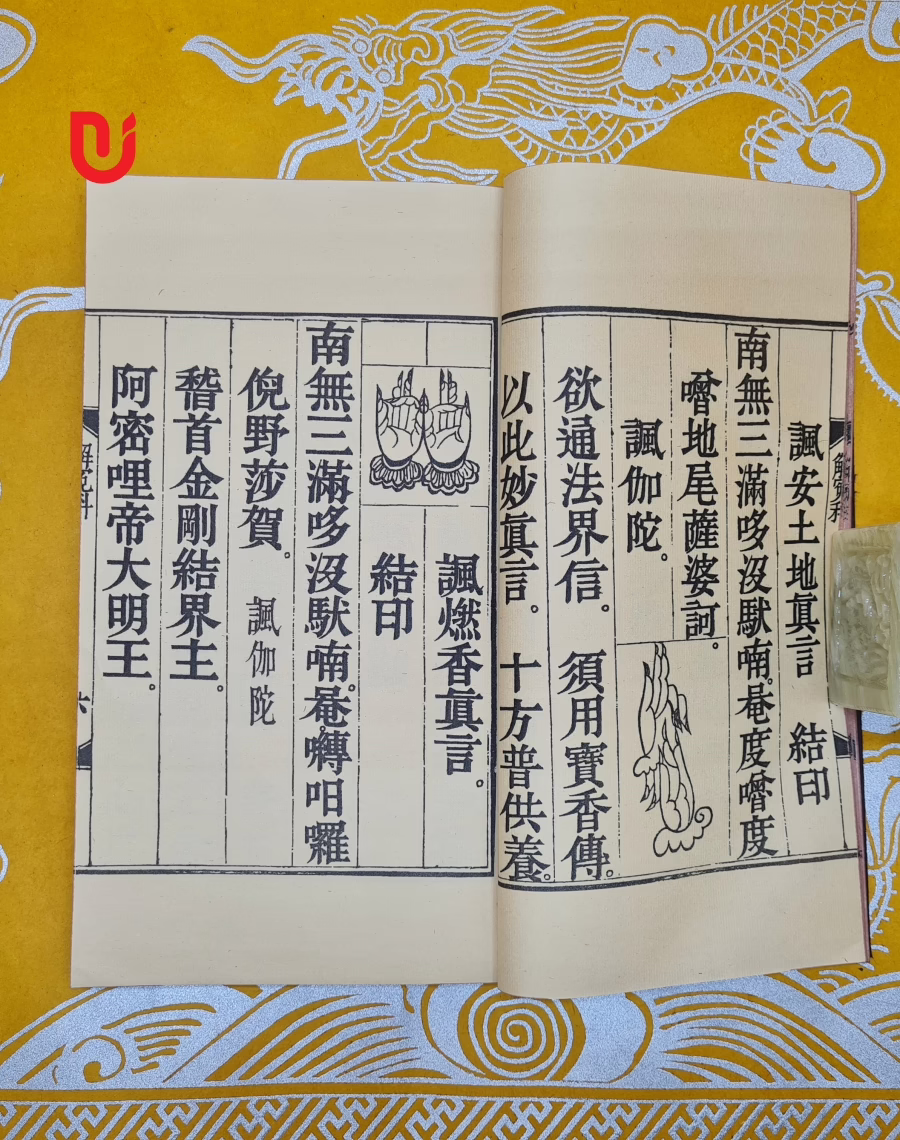 諷安土地眞言 結印
南無三滿哆沒䭾喃。菴度嚕度
嚕地尾薩婆訶。
諷伽陀。
欲通法界信。 須用寶香傳。
以此妙眞言。 十方普供養。
諷燃香眞言。
結印
南無三滿哆沒䭾喃。菴嚩咱囉
倪野莎賀。 諷伽陀
稽首金剛結界主。
阿密哩帝大明王。
解冤科
六